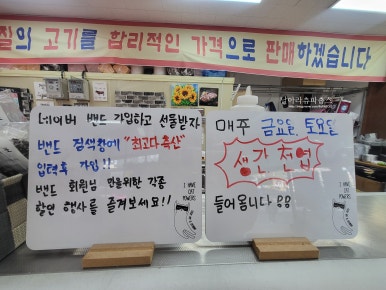 질의 고기를 합리적인 가격으로 판매하겠습니다
네이버 밴드 가입하고 선물받자
밴드 검색창에 "최고다축산"
입력후 가입!!
밴드 회원님 만을위한 각종
할인 행사를 즐겨보세요!!
I HAVE
CAT
POWERS
매주 금요일, 토요일
생간 천엽
들어옵니다
I HAVE
CAT
POWERS